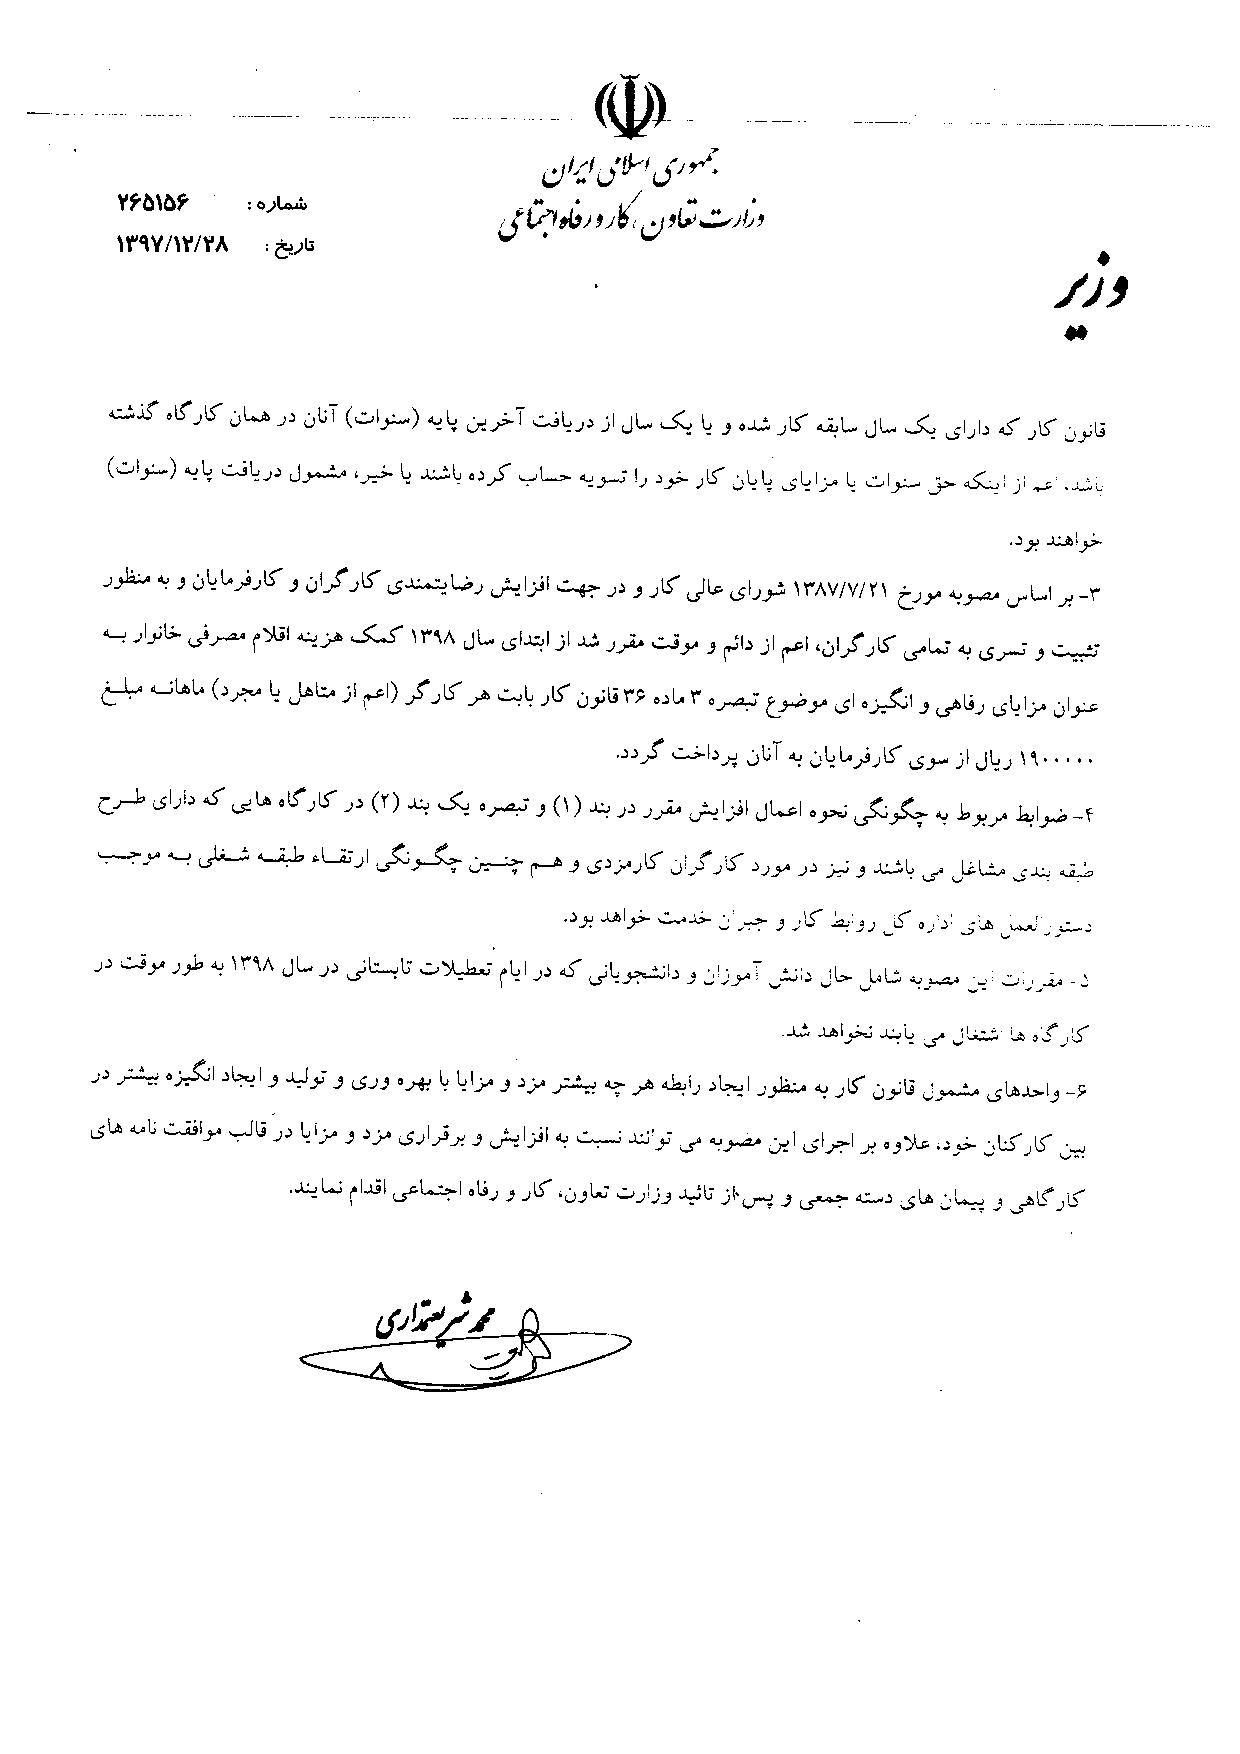 جمهوری اسلامی ایران
وزارت تعاون، کار و رفاه اجتماعی
شماره : ۲۶۵۱۵۶
تاریخ : ۱۳۹۷/۱۲/۲۸
وزیر
قانون کار که دارای یک سال سابقه کار شده و یا یک سال از دریافت آخرین پایه (سنوات) آنان در همان کارگاه گذشته
باشد، اعم از اینکه حق سنوات یا مزایای پایان کار خود را تسویه حساب کرده باشند یا خیر، مشمول دریافت پایه (سنوات)
خواهند بود.
۳- بر اساس مصوبه مورخ ۱۳۸۷/۷/۲۱ شورای عالی کار و در جهت افزایش رضایتمندی کارگران و کارفرمایان و به منظور
تثبیت و تسری به تمامی کارگران، اعم از دائم و موقت مقرر شد از ابتدای سال ۱۳۹۸ کمک هزینه اقلام مصرفی خانوار به
عنوان مزایای رفاهی و انگیزه ای موضوع تبصره ۳ ماده ۳۶ قانون کار بابت هر کارگر (اعم از متاهل یا مجرد) ماهانه مبلغ
۱۹۰۰۰۰۰ ریال از سوی کارفرمایان به آنان پرداخت گردد.
۴- ضوابط مربوط به چگونگی نحوه اعمال افزایش مقرر در بند (۱) و تبصره یک بند (۲) در کارگاه هایی که دارای طرح
طبقه بندی مشاغل می باشند و نیز در مورد کارگران کارمزدی و هم چنین چگونگی ارتقاء طبقه شغلی به موجب
دستورالعمل های اداره کل روابط کار و جبران خدمت خواهد بود.
۵- مقررات این مصوبه شامل حال دانش آموزان و دانشجویانی که در ایام تعطیلات تابستانی در سال ۱۳۹۸ به طور موقت در
کارگاه ها اشتغال می یابند نخواهد شد.
۶- واحدهای مشمول قانون کار به منظور ایجاد رابطه هر چه بیشتر مزد و مزایا با بهره وری و تولید و ایجاد انگیزه بیشتر در
بین کارکنان خود، علاوه بر اجرای این مصوبه می توانند نسبت به افزایش و برقراری مزد و مزایا در قالب موافقت نامه های
کارگاهی و پیمان های دسته جمعی و پس از تائید وزارت تعاون، کار و رفاه اجتماعی اقدام نمایند.
محمد شریعتمداری